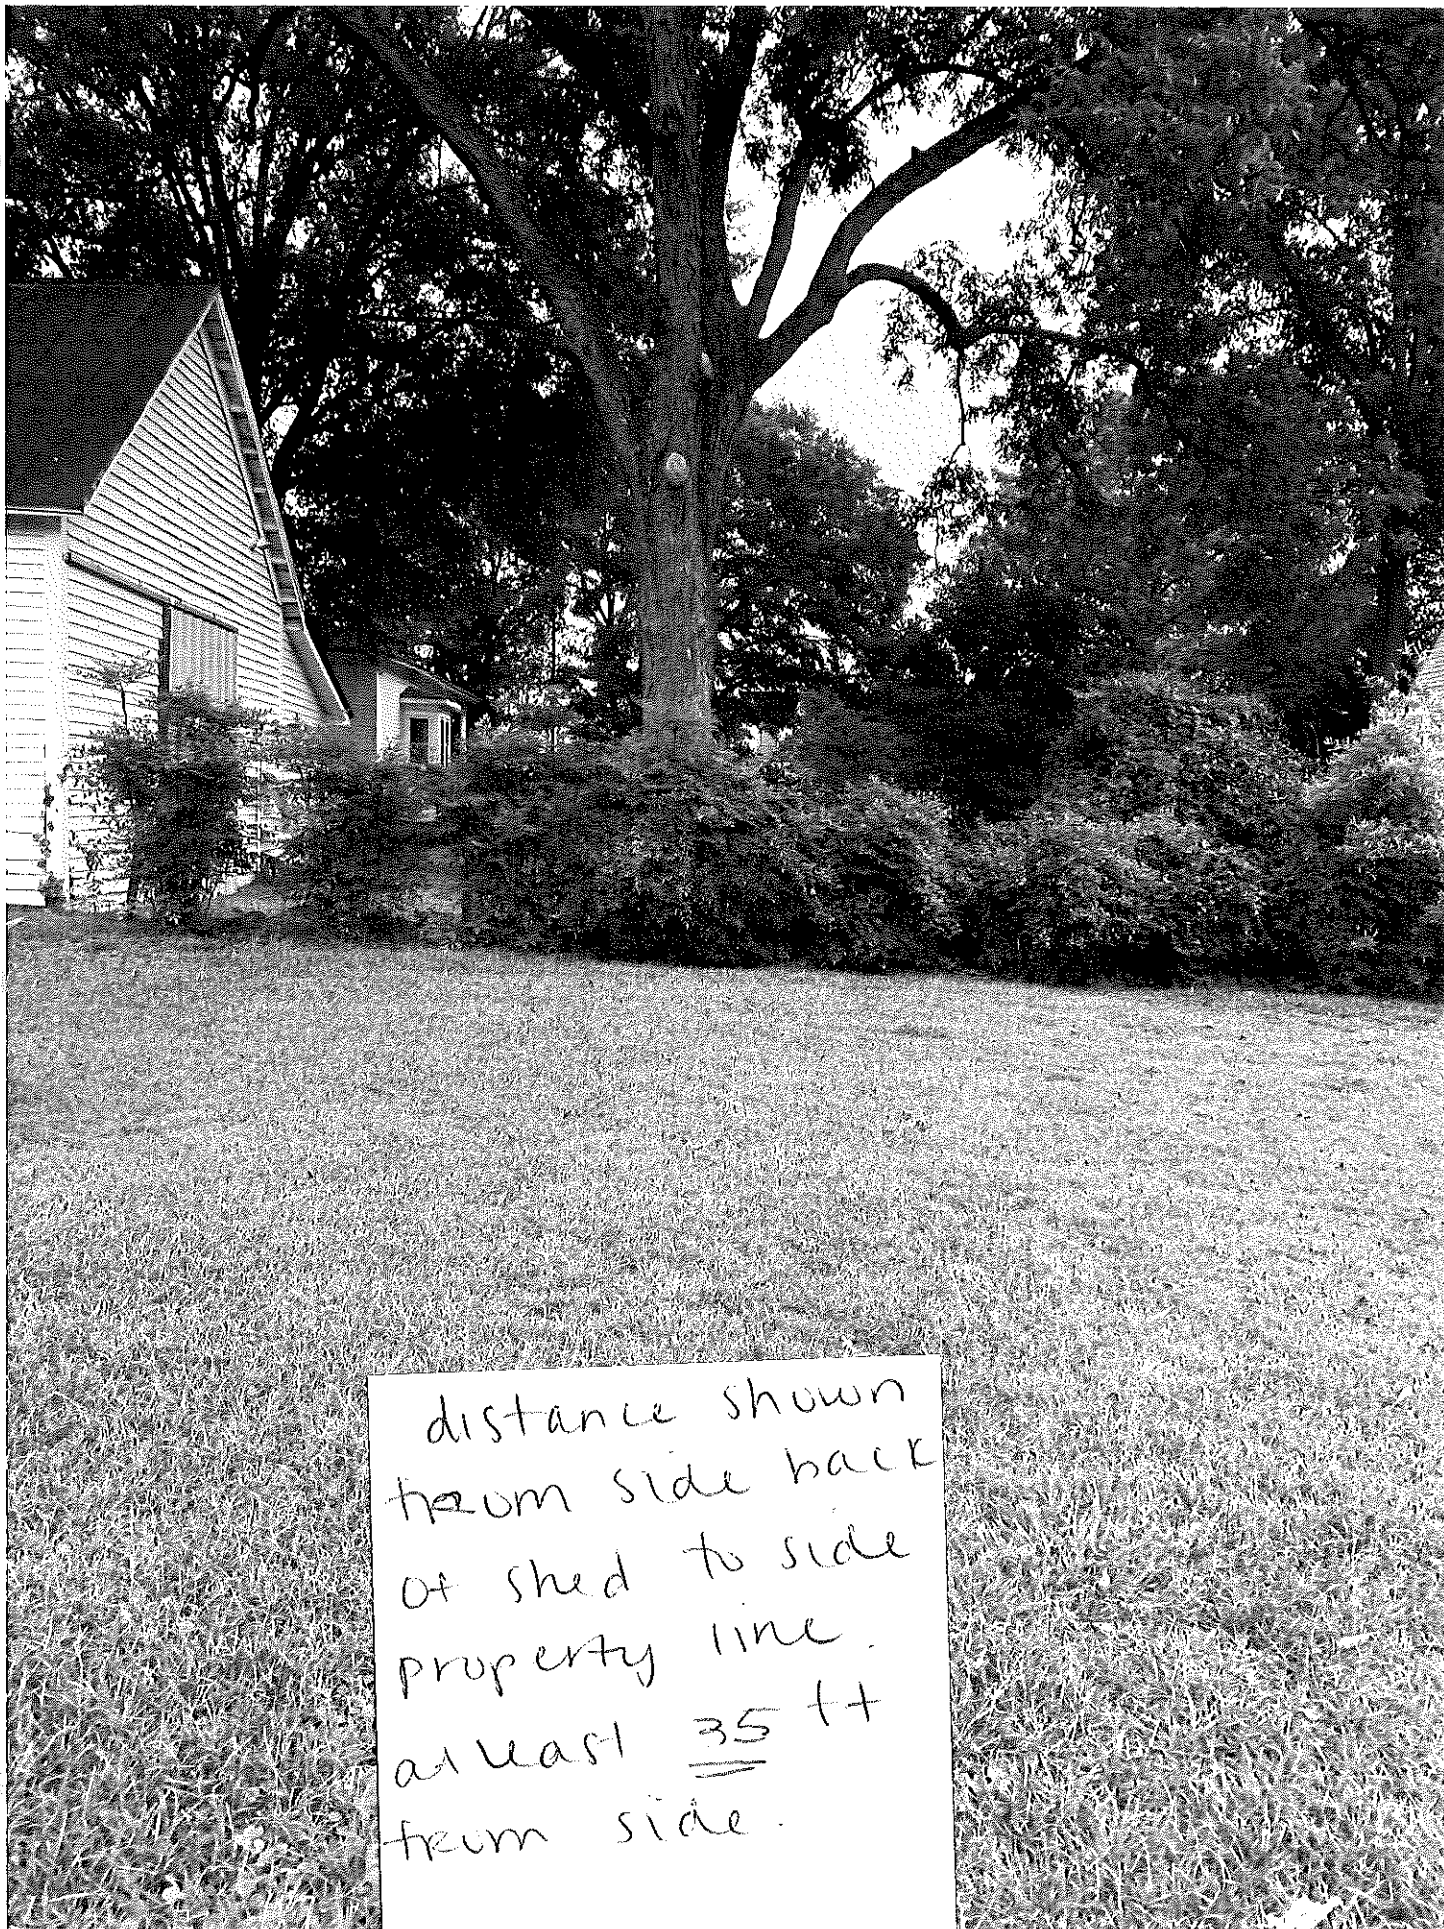 distance shown
from side back
of shed to side
property line.
at least 35 ft
from side.